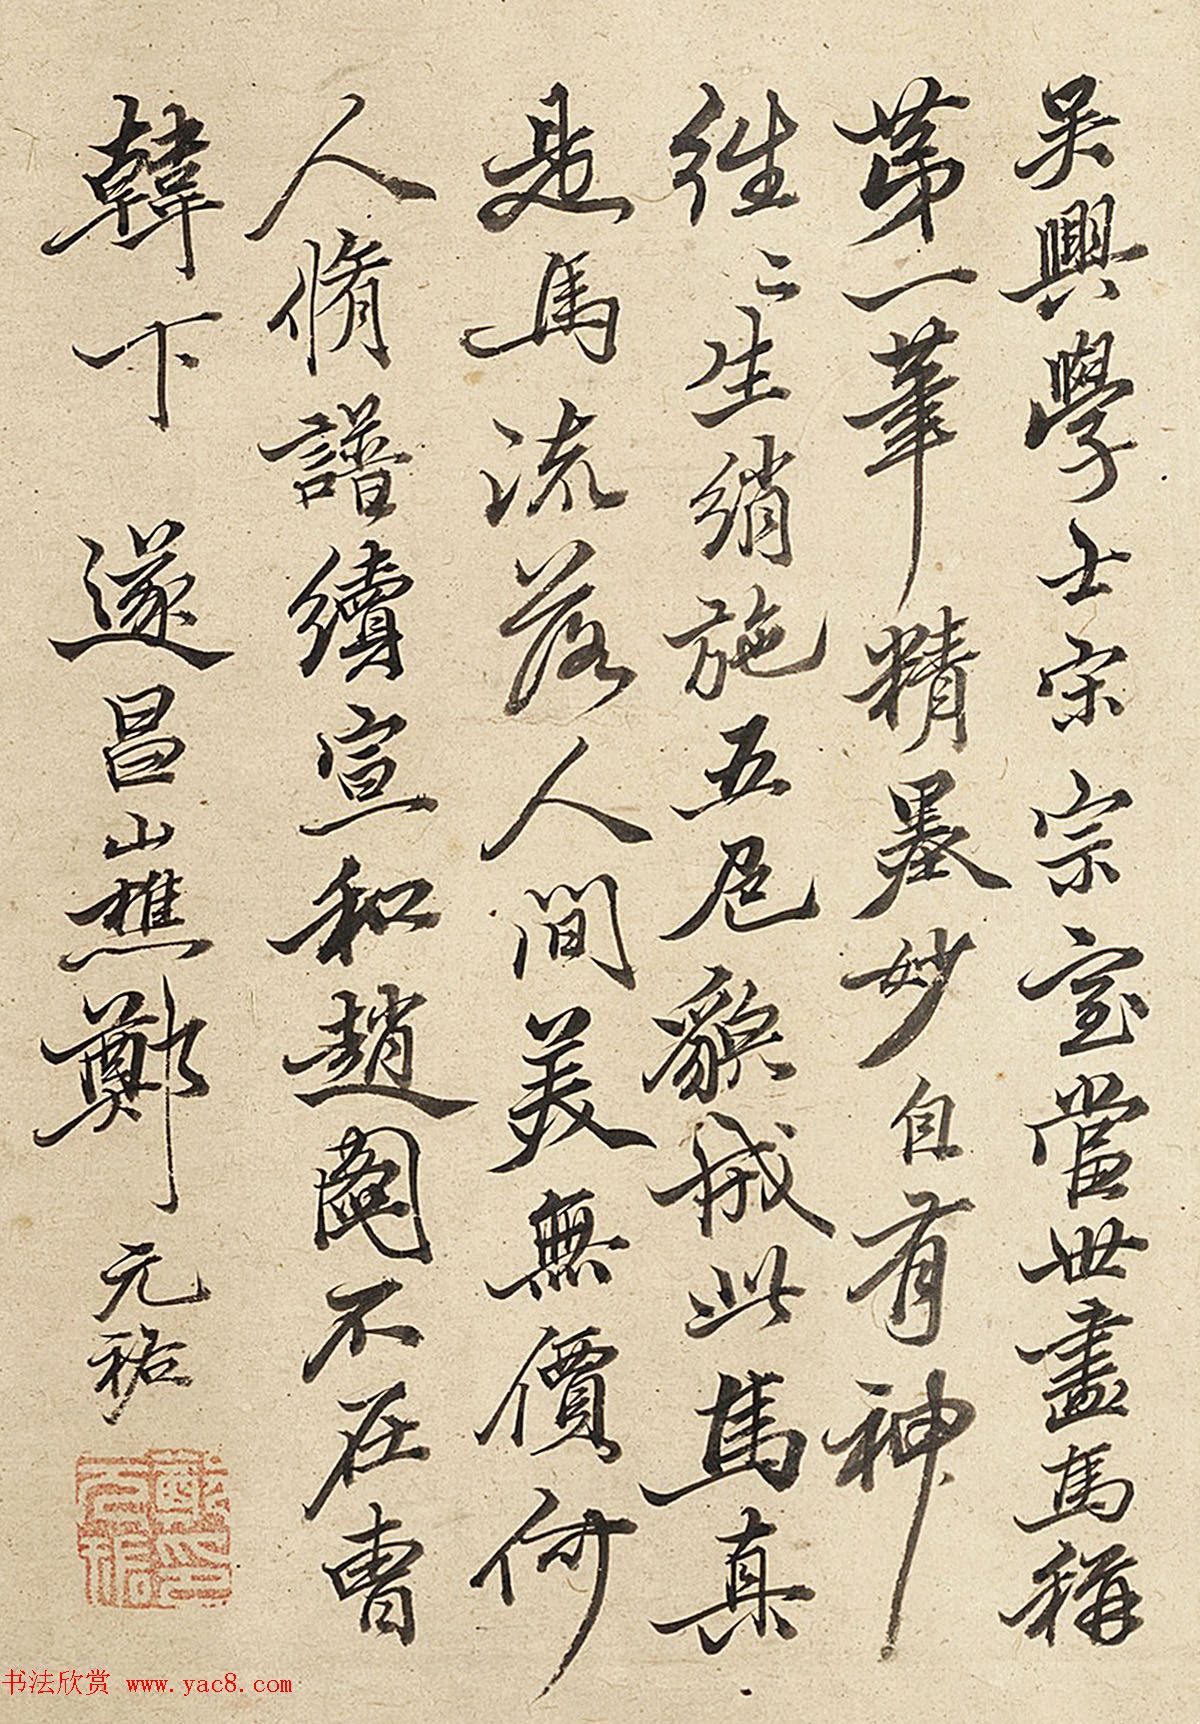 吳興學士宋宗室當世畫馬稱
第一筆精墨妙自有神
往〻生綃施五色貌成此馬真
是馬流落人間美無價何
人脩譜續宣和趙圖不在曹
韓下 遂昌山樵鄭元祐
书法欣赏 www.yac8.com